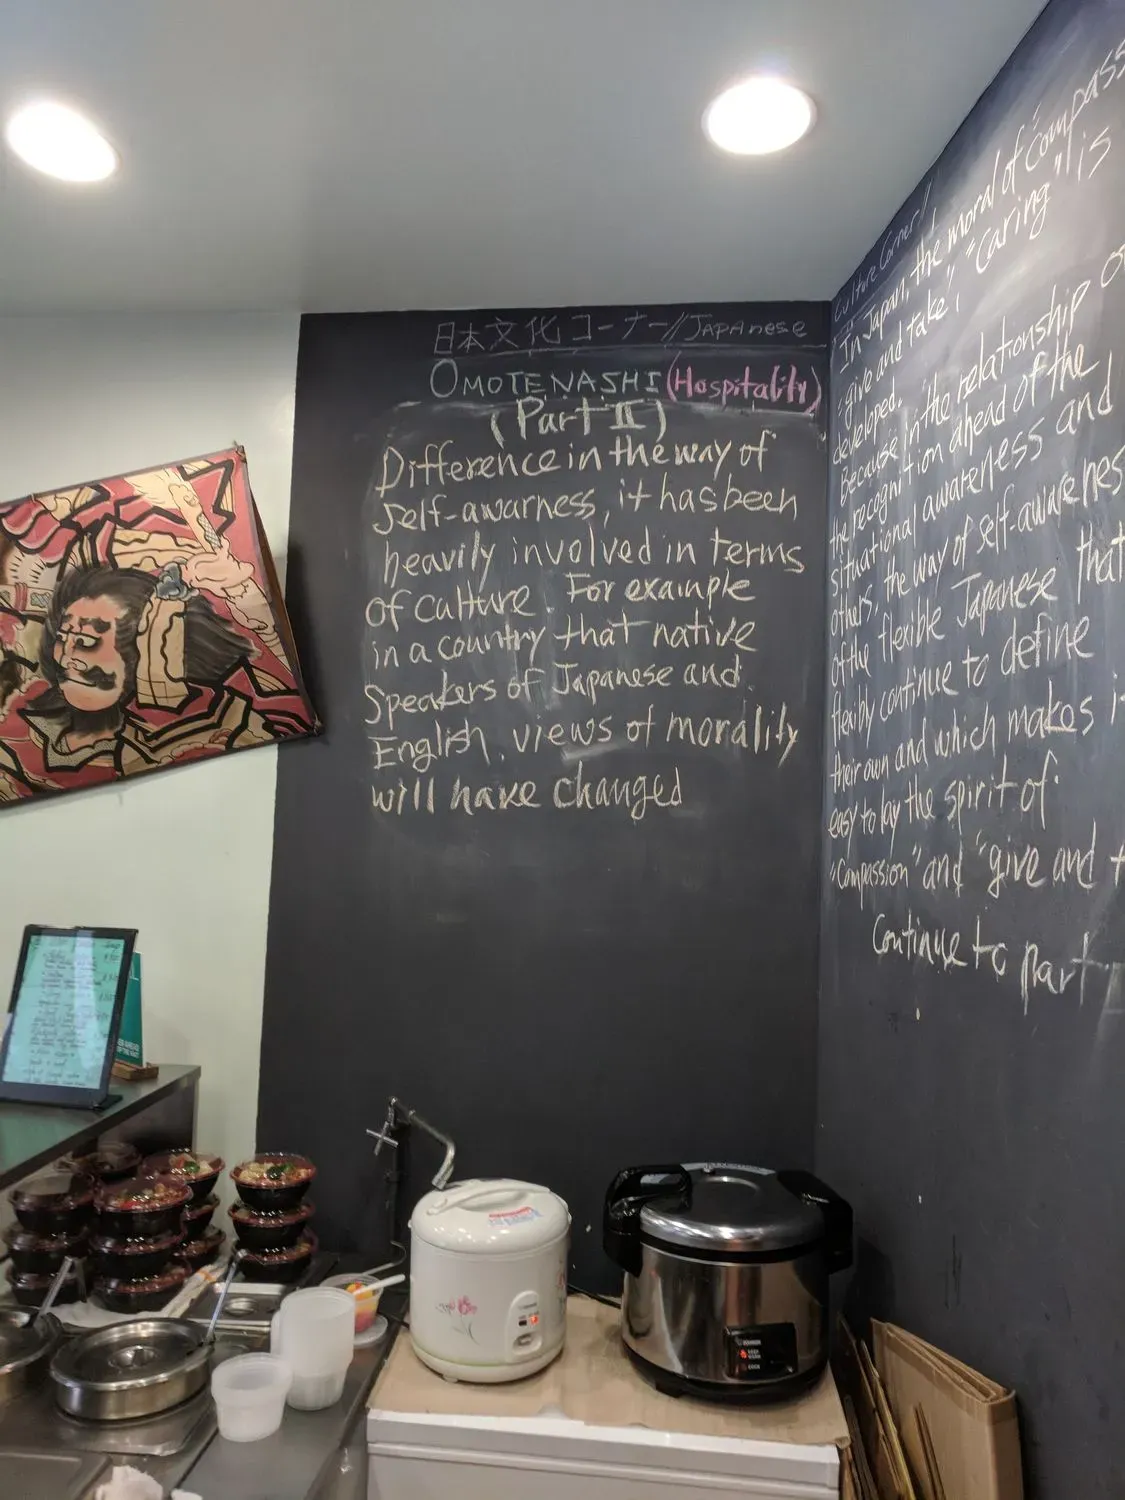 日本文化コーナー//JAPAnese
OMOTENASHI (Hospitality)
(Part II)
Difference in the way of
self-awarness, it has been
heavily involved in terms
of culture. For example
in a country that native
Speakers of Japanese and
English, views of morality
will have changed
Culture Corner//
In Japan, the moral of "compass
"give and take", "caring" is
developed.
Because in the relationship
the recognition ahead of the
situational awareness and
others, the way of self-awarenes
of the flexible Japanese that
flexibly continue to define
their own and which makes i
easy to lay the spirit of
"Compassion" and "give and t
Continue to part
KEEP
WARM
COOK